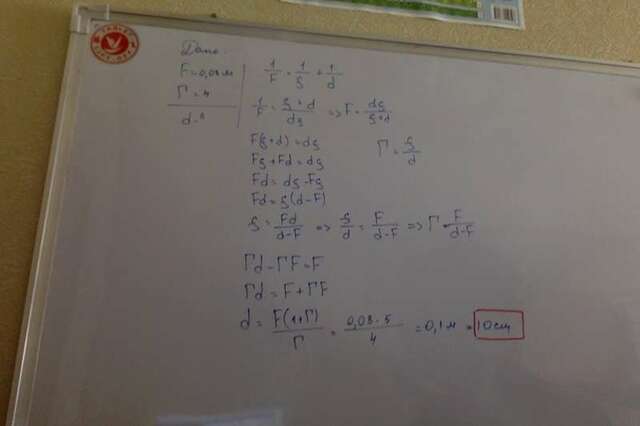 Дано:
F=0,08м
Г=4
d-?
1/F = 1/f + 1/d
1/F = f+d/df => F = df/f+d
F(f+d)=df
Ff+Fd=df
Fd=df-Ff
Fd=f(d-F)
Г=f/d
f=Fd/d-F => f/d = F/d-F => Г=F/d-F
Гd-ГF=F
Гd=F+ГF
d=F(1+Г)/Г = 0,08·5/4 =0,1м =10см